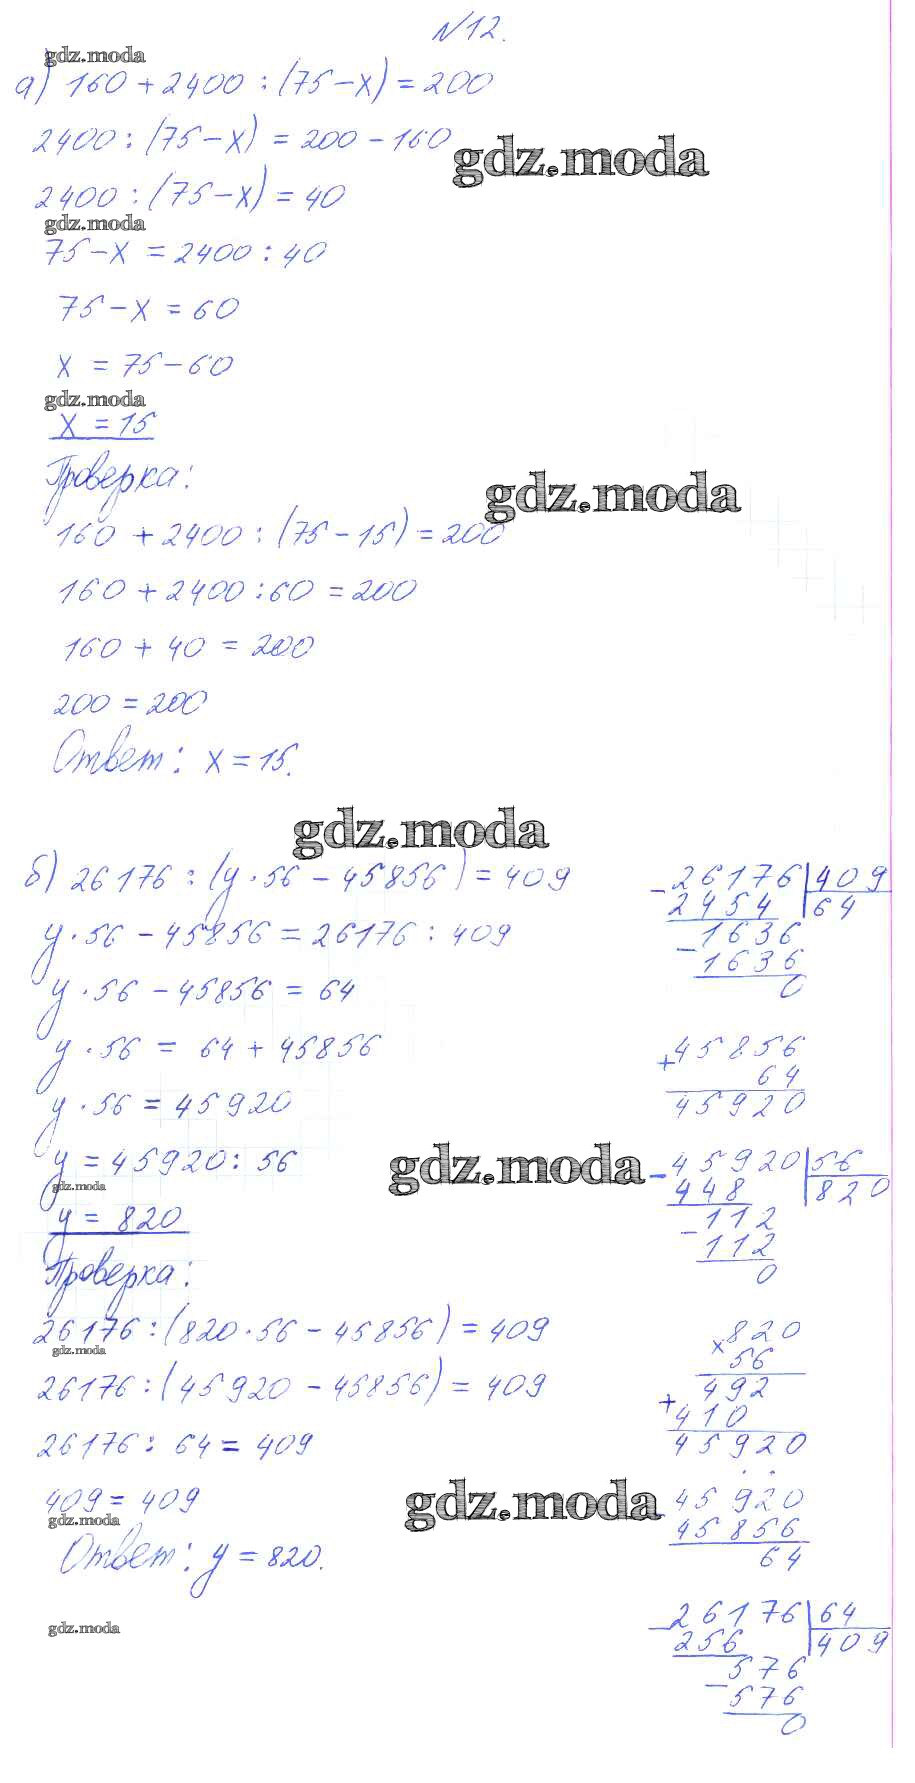 N12.
gdz.moda
а) 160 + 2400 : (75 - x) = 200
2400 : (75 - x) = 200 - 160
gdz.moda
2400 : (75 - x) = 40
gdz.moda
75 - x = 2400 : 40
75 - x = 60
x = 75 - 60
gdz.moda
x = 15
Проверка:
gdz.moda
160 + 2400 : (75 - 15) = 200
160 + 2400 : 60 = 200
160 + 40 = 200
200 = 200
Ответ: x = 15.
gdz.moda
б) 26176 : (y · 56 - 45856) = 409
y · 56 - 45856 = 26176 : 409
y · 56 - 45856 = 64
y · 56 = 64 + 45856
y · 56 = 45920
y = 45920 : 56
gdz.moda
gdz.moda
y = 820
Проверка:
26176 : (820 · 56 - 45856) = 409
gdz.moda
26176 : (45920 - 45856) = 409
26176 : 64 = 409
409 = 409
gdz.moda
gdz.moda
Ответ: y = 820.
gdz.moda
- 26176 | 409
2454 | 64
- 1636
1636
0
+ 45856
64
45920
- 45920 | 56
448 | 820
- 112
112
0
x 820
56
+ 492
410
45920
45920
45856
64
- 26176 | 64
256 | 409
- 576
576
0